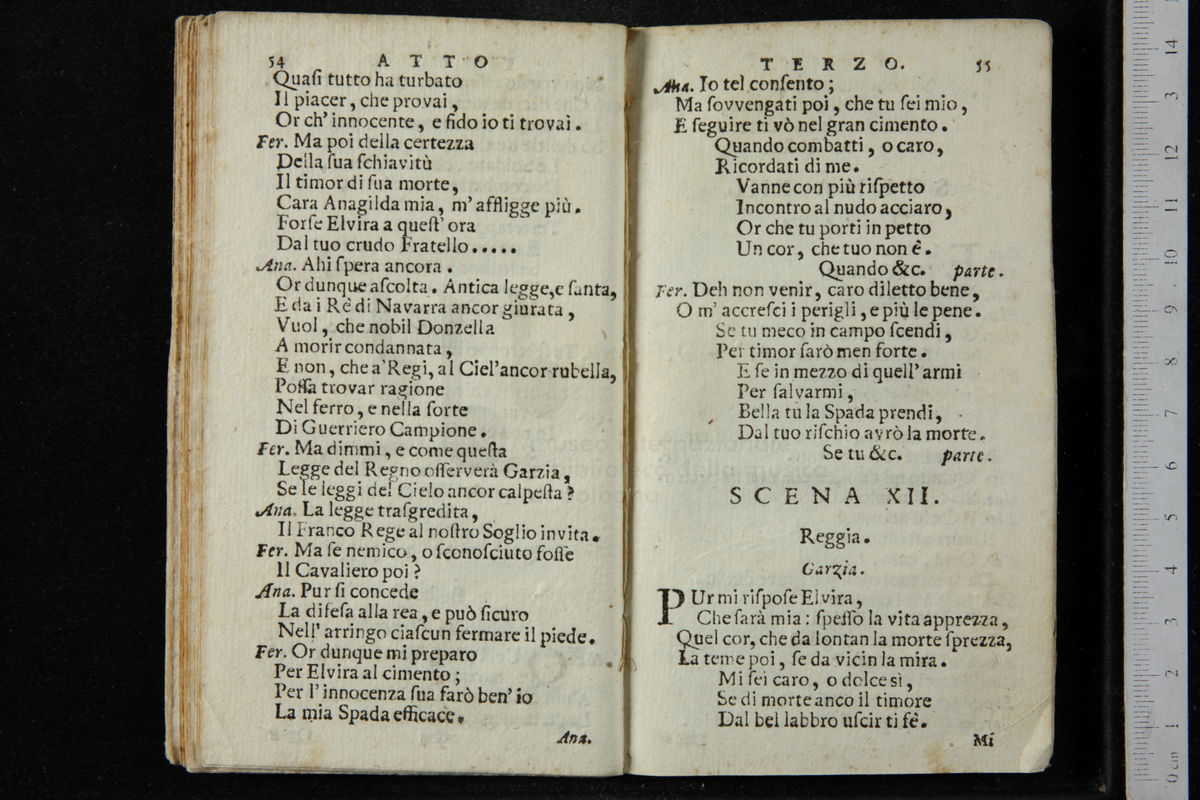 54 ATTO
Quaſi tutto ha turbato
Il piacer, che provai,
Or ch' innocente, e fido io ti trovai.
Fer. Ma poi della certezza
Della ſua ſchiavitù
Il timor di ſua morte,
Cara Anagilda mia, m' affligge più.
Forſe Elvira a queſt' ora
Dal tuo crudo Fratello.....
Ana. Ahi ſpera ancora.
Or dunque aſcolta. Antica legge, e ſanta,
E da i Rè di Navarra ancor giurata,
Vuol, che nobil Donzella
A morir condannata,
E non, che a' Regi, al Ciel' ancor rubella,
Poſſa trovar ragione
Nel ferro, e nella ſorte
Di Guerriero Campione.
Fer. Ma dimmi, e come queſta
Legge del Regno oſſerverà Garzia,
Se le leggi del Cielo ancor calpeſta?
Ana. La legge traſgredita,
Il Franco Rege al noſtro Soglio invita.
Fer. Ma ſe nemico, o ſconoſciuto foſſe
Il Cavaliero poi?
Ana. Pur ſi concede
La difeſa alla rea, e può ſicuro
Nell' arringo ciaſcun fermare il piede.
Fer. Or dunque mi preparo
Per Elvira al cimento;
Per l' innocenza ſua farò ben' io
La mia Spada efficace.
Ana.
TERZO. 55
Ana. Io tel conſento;
Ma ſovvengati poi, che tu ſei mio,
E ſeguire ti vò nel gran cimento.
Quando combatti, o caro,
Ricordati di me.
Vanne con più riſpetto
Incontro al nudo acciaro,
Or che tu porti in petto
Un cor, che tuo non è.
Quando &c. parte.
Fer. Deh non venir, caro diletto bene,
O m' accreſci i perigli, e più le pene.
Se tu meco in campo ſcendi,
Per timor ſarò men forte.
E ſe in mezzo di quell' armi
Per ſalvarmi,
Bella tu la Spada prendi,
Dal tuo riſchio avrò la morte.
Se tu &c. parte.
SCENA XII.
Reggia.
Garzia.
PUr mi riſpoſe Elvira,
Che ſarà mia: ſpeſſo la vita apprezza,
Quel cor, che da lontan la morte ſprezza,
La teme poi, ſe da vicin la mira.
Mi ſei caro, o dolce sì,
Se di morte anco il timore
Dal bel labbro uſcir ti fè.
Mi